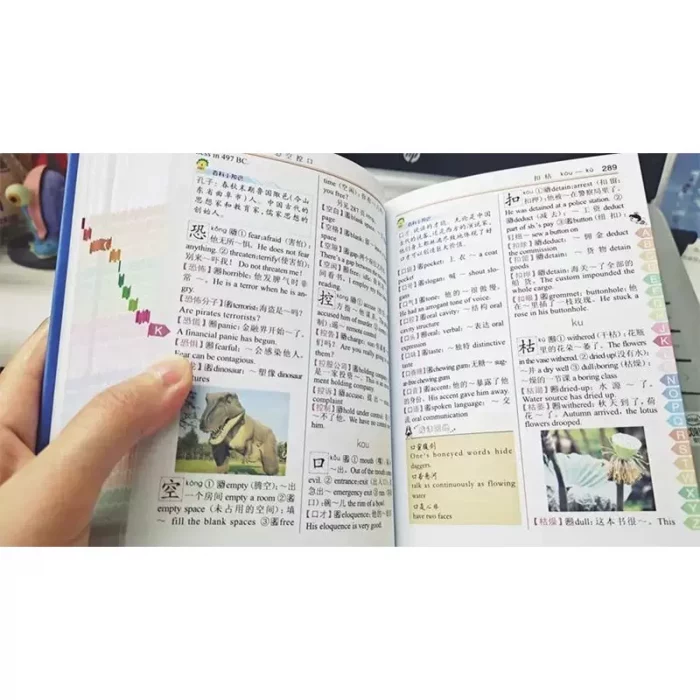 ness in 497 BC.
百科小知识
孔子：春秋末期鲁国陬邑（今山
东省曲阜市）人，中国古代的
思想家和教育家，儒家思想的
创始人。
恐 kǒng ① 动 fear;afraid（害怕）：
他无所～惧。He does not fear
anything. ② threaten;terrify(使害怕):
别来～吓我！Do not threaten me!
【恐怖】形 horrible: 他发脾气时非
常～。He is a terror when he is an-
gry.
【恐怖分子】名 terrorists: 海盗是～吗？
Are pirates terrorists?
【恐慌】形 panic: 金融界开始～了。
A financial panic has begun.
【恐惧】形 fearful: ～会感染他人。
Fear can be contagious.
名 dinosaur: ～塑像 dinosaur
K
空 kòng ① 动 empty（腾空）：～出
一个房间 empty a room ② 名
empty space（未占用的空间）：填
～ fill the blank spaces ③ 名 free
time（空闲）
you free?
【空白】名 blank
【空隙】
【空闲】
控 kòng
accused
remote control
【控告】动 charge
them?
【控股公司】
是一家投资～。
ment holding company
【控诉】动 accuse
complaint
【控制】动 hold under control
～不了他。We have no control over
him.
kou
口 kǒu ① 名 mouth
～出。Out of the mouth
evil. ② entrance;exit（出入
急出～ emergency exit ③ rim
口）：碗～儿 the rim of a bowl
【口才】名 eloquence: 他的～
His eloquence is very good.
百科小知识
【口袋】名 pocket: 上衣～ a coat
pocket
【口号】名 slogan: 喊～ shout slo-
gans
【口气】名 tone: 他的～很傲慢。
He had an arrogant tone of voice.
【口腔】名 oral cavity: ～结构 oral
cavity structure
【口头】形 oral; verbal: ～表达 oral
expression
【口味】名 taste: ～独特 distinctive
taste
【口香糖】名 chewing gum: 无糖～ sug-
ar-free chewing gum
【口音】名 accent: 他的～暴露了他
的身份。His accent gave him away.
【口语】名 spoken language: ～交
流 oral communication
口蜜腹剑
One's honeyed words hide
daggers.
口若悬河
talk as continuously as flowing
water
口是心非
have two faces
扣 枯 kòu — kū 289
扣 kòu ① 动 detain;arrest（扣留;
扣押）：他被～在警察局里了。
He was detained at a police station. ②
动 deduct（减去）：～工资 deduct
part of sb.'s pay ③ 名 button（纽扣）：
～ sew a button on
【扣除】动 deduct: ～佣金 deduct
the commission
【扣留】动 detain: ～货物 detain
goods
【扣押】动 detain: 海关～了全部的
船货。The custom impounded the
whole cargo.
【扣眼】名 grommet; buttonhole: 他
在～里插了一枝玫瑰。He stuck a
rose in his buttonhole.
ku
枯 kū ① 形 withered（干枯）：花瓶
里的花朵～萎了。The flowers
in the vase withered. ② dried up（没有水）：
～井 a dry well ③ dull;boring（枯燥）：
～燥的一节课 a boring class
【枯竭】形 dried-up: 水源～了。
Water source has dried up.
【枯萎】形 withered: 秋天到了，荷
花～了。Autumn arrived, the lotus
flowers drooped.
【枯燥】形 dull: 这本书很～。This
A
B
C
D
E
F
G
H
J
K
L
M
N
O
P
Q
R
S
T
W
X
Y
Z